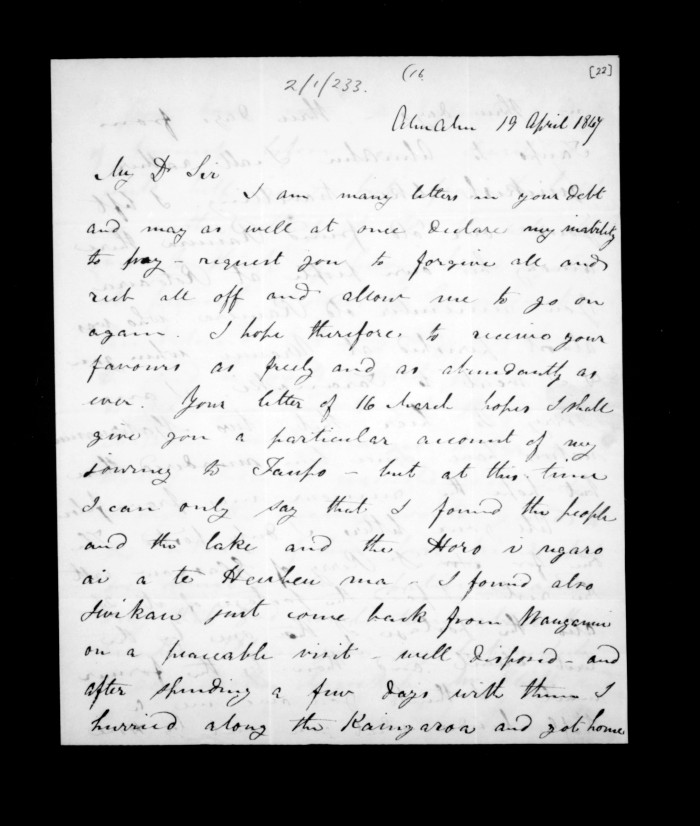 2/1/233.
(16
[22]
Ahuahu 19 April 1847
My Dr Sir
I am many letters in your debt
and may as well at once declare my inability
to pay - request you to forgive all and
rub all off and allow me to go on
again. I hope therefore to receive your
favours as freely and as abundantly as
ever. Your letter of 16 March hopes I shall
give you a particular account of my
journey to Taupo - but at this time
I can only say that I found the people
and the lake and the Horo i ngaro
ai a te Heuheu ma - I found also
Iwikau just come back from Wanganui
on a peaceable visit - well disposed - and
after spending a few days with them I
hurried along the Kaingaroa and got home